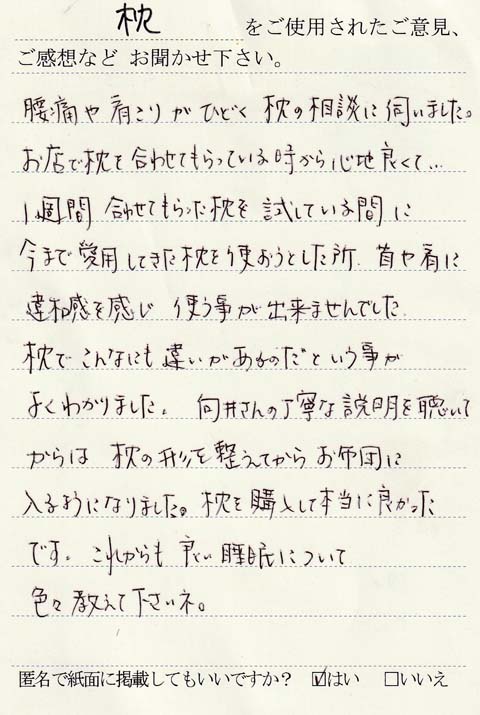 枕 をご使用されたご意見、
ご感想など お聞かせ下さい。
腰痛や 肩こり が ひどく 枕の相談に伺いました。
お店で枕を合わせてもらっている時から心地良くて…
1週間 合わせてもらった枕を 試している間に
今まで愛用してきた枕を使おうとした所 首や肩に
違和感を感じ 使う事が出来ませんでした
枕でこんなにも違いがあるのだという事が
よくわかりました。 向井さんの丁寧な説明を聴いて
からは 枕の形を整えてからお布団に
入るようになりました。枕を購入して本当に良かった
です。これからも 良い睡眠について
色々教えて下さいネ。
匿名で紙面に掲載してもいいですか? ☑はい □いいえ